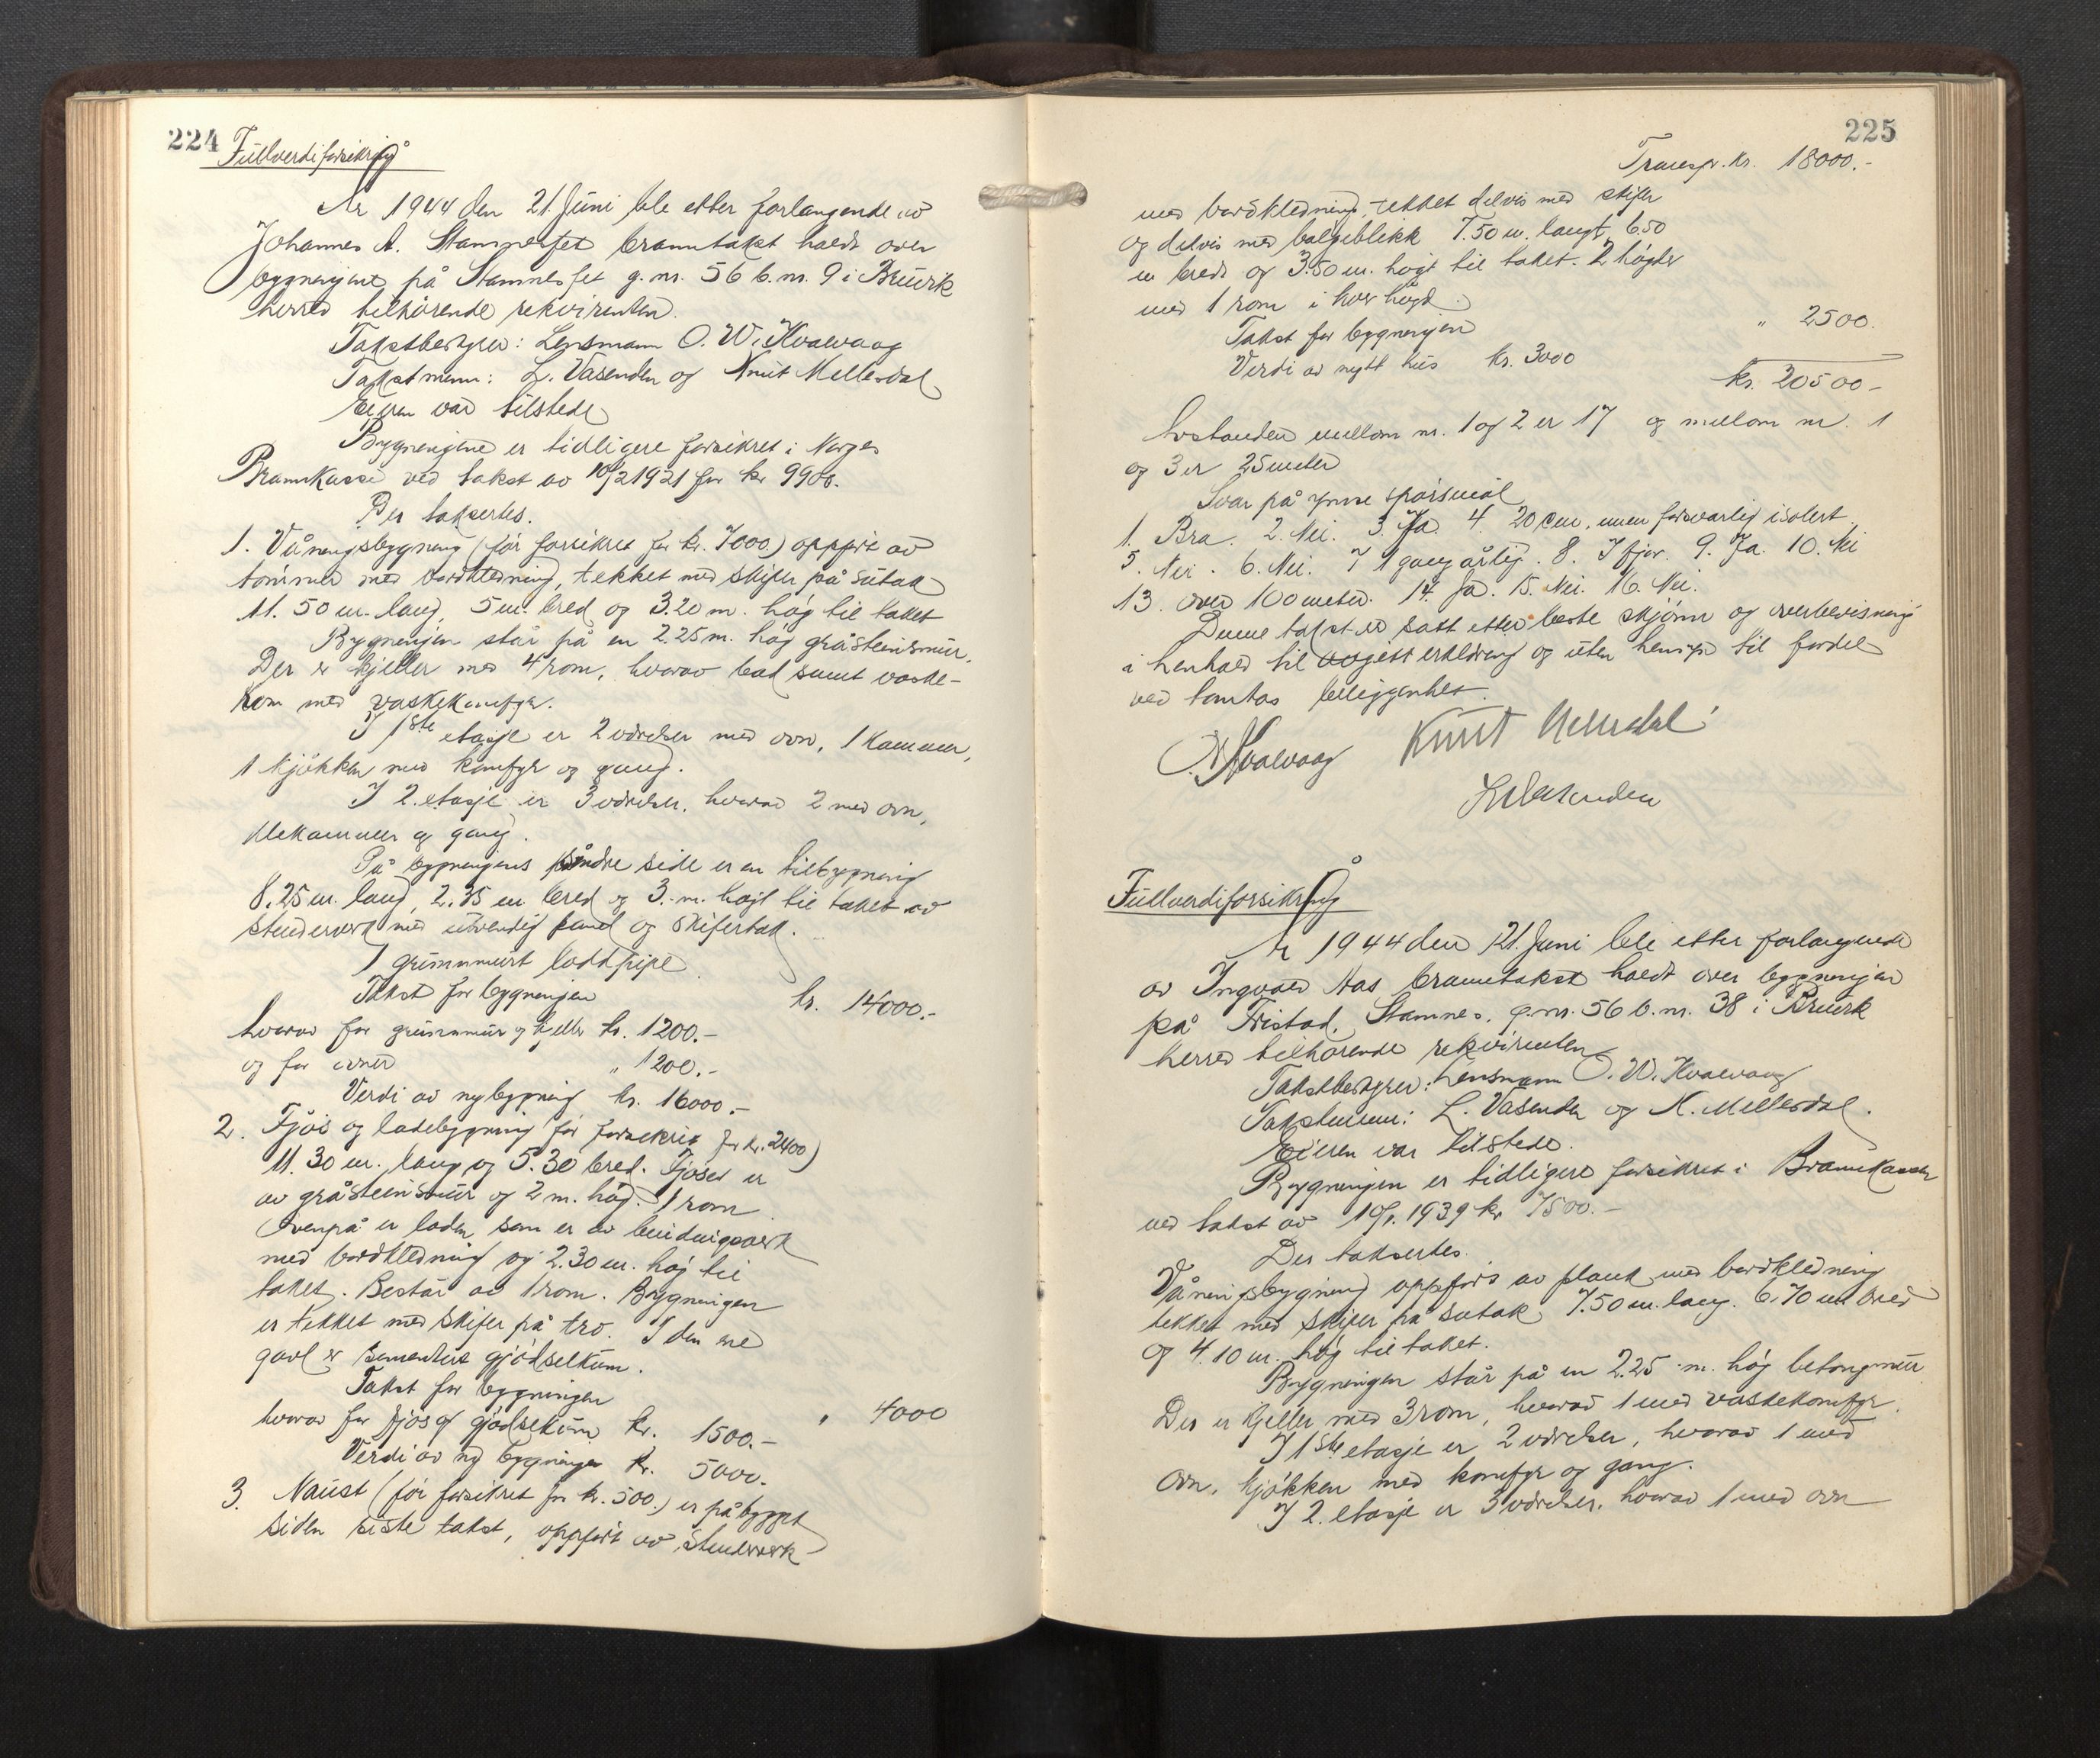 224 Fullverdiforsikring
År 1944 den 21. Juni ble etter forlangende av
Johannes A. Stamnesfet branntakst holdt over
bygningene på Stamnesfet g.nr. 56 b.nr. 9 i Bruvik
herred tilhørende rekvirenten.
Takstbestyrer: Lensmann O. W. Kvalvaag
Takstmenn: L. Vasenden og Knut Mellesdal
Eieren var tilstede
Bygningene er tidligere forsikret i Norges
Brannkasse ved takst av 10/2 1921 for kr 9900.
Der taksertes.
1. Våningsbygning (før forsikret for kr. 7000) oppført av
tømmer med bordkledning, tekket med skifer på sutak
11.50 m. lang, 5 m. bred og 3.20 m. høg til taket
Bygningen står på en 2.25 m. høg gråsteinsmur.
Der er kjeller med 4 rom, hvorav bad samt vaske-
rom med vaskekomfyr.
I 1ste etasje er 2 værelser med ovn, 1 kammer,
1 kjøkken med komfyr og gang.
I 2. etasje er 3 værelser, hvorav 2 med ovn,
klekammer og gang.
På bygningens søndre side er en tilbygning
8.25 m. lang, 2.35 m bred og 3. m. høgt til taket av
stenderverk med utvendig panel og skifertak.
1 grunnmurt loddpipe
Takst for bygningen kr. 14000.-
hvorav for grunnmur og kjeller kr. 1200.-
og for ovner " 1200.-
Verdi av ny bygning kr. 16000.-
2. Fjøs og ladebygning (før forsikret for kr. 2400)
11.30 m. lang og 5.30 bred. Fjøset er
av gråsteinsmur og 2 m. høg. 1 rom
Ovenpå er laden som er av bindingsverk
med bordkledning og 2.30 m. høg til
taket. Består av 1 rom. Bygningen
er tekket med skifer på tro. I den ene
gavl er sementert gjødselkum.
Takst for bygningen " 4000
hvorav for fjøs og gjødselkum kr. 1500.-
Verdi av ny bygning kr. 5000.
3. Naust (før forsikret for kr. 500.) er påbygget
siden siste takst, oppført av stenderverk
225
Transp. kr. 18000.-
med bordkledning, tekket delvis med skifer
og delvis med bølgeblikk 7.50 m. langt, 6.50
m bredt og 3.50 m. høgt til taket. 2 høgder
med 1 rom i hver høgd.
Takst for bygningen " 2500.
Verdi av nytt hus kr. 3000
kr. 20500-
Avstanden mellom nr. 1 og 2 er 17 og mellom nr. 1
og 3 er 25 meter
Svar på ymse spørsmål
1. Bra. 2. Nei. 3. Ja. 4. 20 cm. men forsvarlig isolert
5. Nei. 6. Nei. 7 1 gang årlig. 8. I fjor. 9. Ja. 10. Nei
13. over 100 meter. 14. Ja. 15. Nei. 16. Nei.
Denne takst er satt etter beste skjønn og overbevisning
i henhold til avgitt erklæring og uten hensyn til fordel
ved tomtas beliggenhet.
O. W. Kvalvaag Knut Mellesdal
L. Vasenden
Fullverdiforsikring
År 1944 den 21. Juni ble etter forlangende
av Ingvald Aas branntakst holdt over bygningen
på Fristad, Stamnes, g.nr. 56 b.nr. 38 i Bruvik
herred tilhørende rekvirenten
Takstbestyrer: Lensmann O. W. Kvalvaag
Takstmenn: L. Vasenden og K. Mellesdal.
Eieren var tilstede.
Bygningen er tidligere forsikret i Brannkassen
ved takst av 1939 kr 7500.-
Der taksertes.
Våningsbygning oppført av plank med bordkledning
tekket med skifer på sutak 7.50 m. lang. 6.70 m bred
og 4.10 m. høg til taket.
Bygningen står på en 2.25 m. høg betongmur
Der er kjeller med 3 rom, hvorav 1 med vaskekomfyr.
I 1ste etasje er 2 værelser, hvorav 1 med
ovn, kjøkken med komfyr og gang.
I 2. etasje er 3 værelser, hvorav 1 med ovn